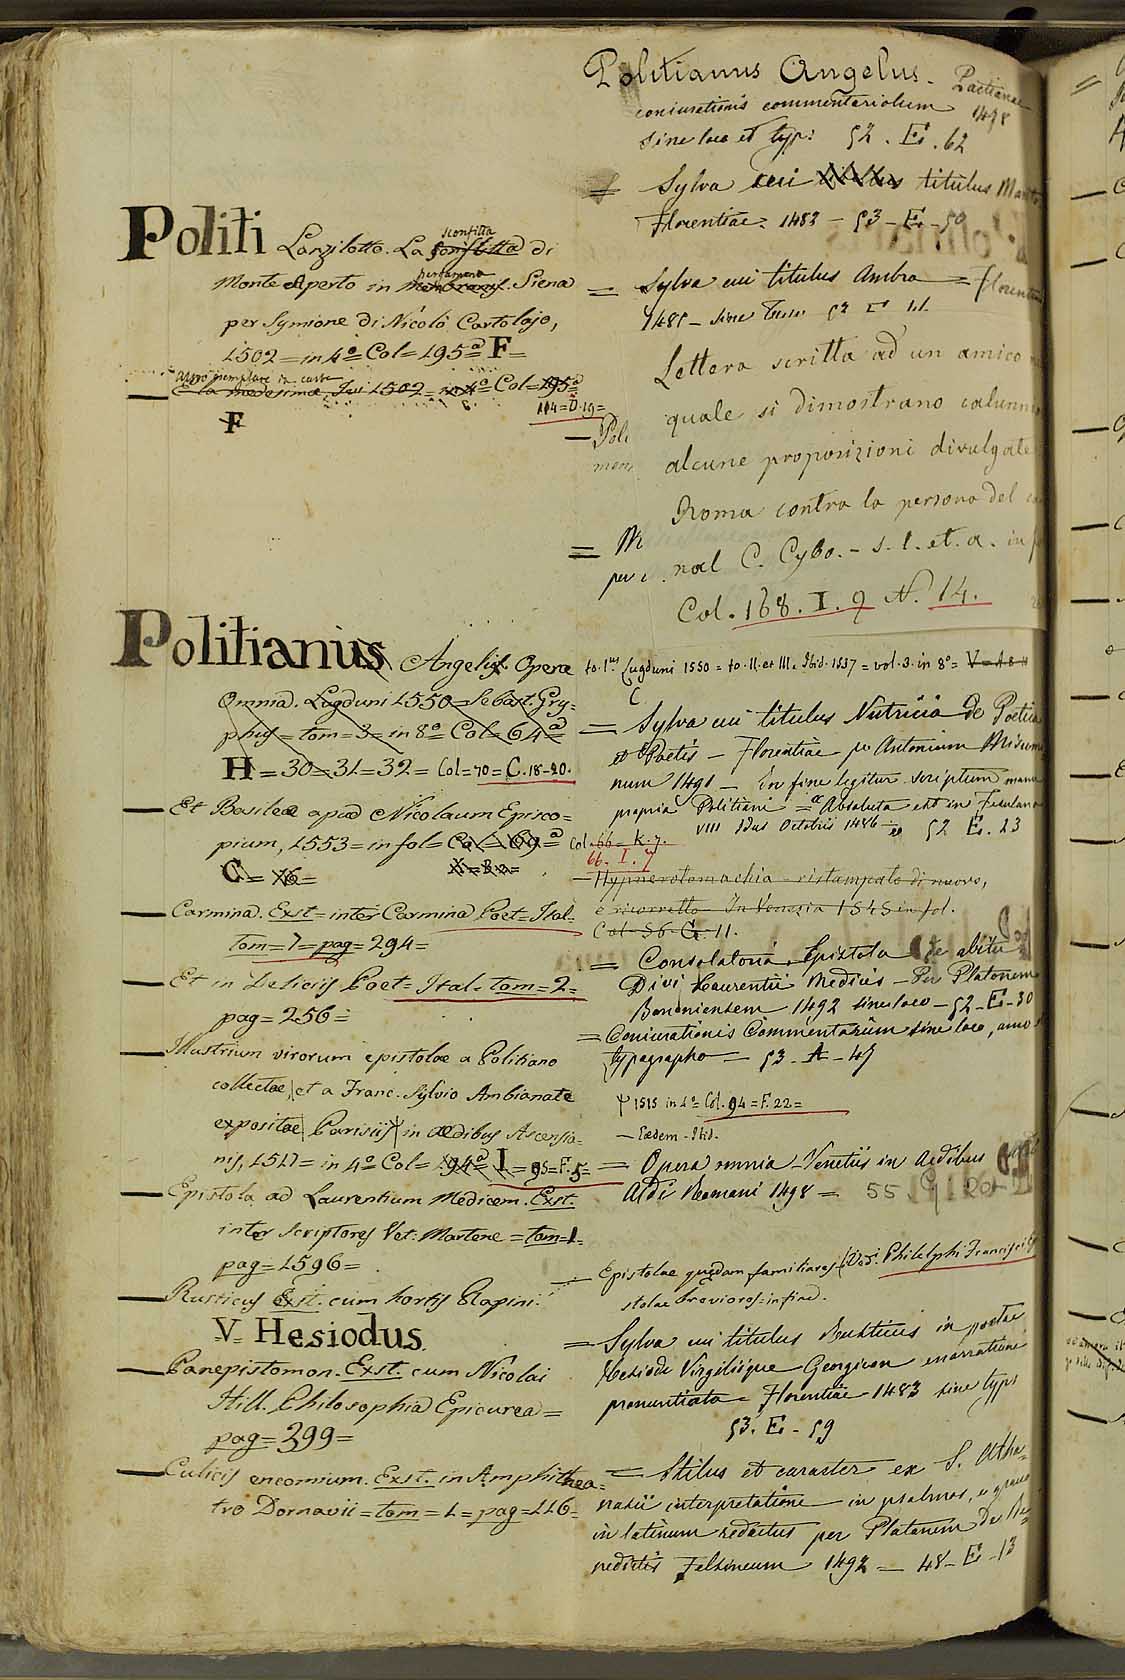 Politi Lanzilotto. La sconfitta di
Monte Aperto in pergamena. Siena
per Symione di Nicolò Cartolajo,
1502 = in 4º Col = 195ª F =
altro esemplare in carta
E la medesima, Ivi 1502 = in 4º = Col = 195ª
114 = D. 19 =
F
Politianus Angelus. Opera
Omnia. Lugduni 1550 = Sebast. Gry-
phius = tom = 3 = in 8º Col = 64ª
H = 30 = 31 = 32 = Col = 70 = C. 18-20.
Et Basileæ apud Nicolaum Episco-
pium, 1553 = in fol = Col = 69ª
C = 16 =
Carmina. Exst = inter Carmina Poet = Ital =
tom = 7 = pag = 294 =
Et in Deliciis Poet = Ital = tom = 2 =
pag = 256 =
Illustrium virorum epistolæ a Politiano
collectæ, et a Franc. Sylvio Ambianate
expositæ Parisiis in ædibus Ascensia-
nis, 1517 = in 4º Col = 94ª I = 95 = F. 5 =
Epistola ad Laurentium Medicem. Exst.
inter Scriptores Vet. Martene = tom = 1 =
pag = 1596 =
Rusticus Exst. cum hortis Rapini.
V. Hesiodus
Panepistomon. Exst. cum Nicolai
Hill. Philosophia Epicurea =
pag = 399 =
Culicis encomium. Exst. in Amphithea-
tro Dornavii = tom = 1 = pag = 116 =
Politianus Angelus. Pactianae
coniurationis commentariolum 1498
sine loco et typ: 52. E. 62
= Sylva cui titulus Manto
Florentiae. 1482 - 53 - E - 50
= Sylva cui titulus Ambra = Florentiae
1485 - sine
Lettera scritta ad un amico
quale si dimostrano calunnio
alcune proposizioni divulgate
Roma contra la persona del
nal C. Cybo. - s. l. et. a. in
Col. 168. I. 9 N. 14.
to. I.us Lugduni 1550 = to. II. et III. Ibid. 1537 = vol. 3. in 8º =
= Sylva cui titulus Nutricia De Poetica
et Poetis - Florentiae per Antonium Miscomi
num 1491 - in fine legitur scriptum manu
propria Politiani = Absoluta est in Fesulano
VIII Idus Octobris 1486 = 52 E. 23
Col. 66 = K. 7.
66. I. 7
- Hypnerotomachia - ristampato di nuovo,
e ricorretto In Venezia 1545 in fol.
Col. 56. G. 11.
= Consolatoria Epistola de obitu
Divi Laurentii Medicis - Per Platonem
Bononiensem 1492 sine loco - 52 - E - 30
= Coniurationis Commentarium sine loco, anno
typographo = 53 - A - 47
1515 in 4º Col. 94 = F. 22 =
- Eædem. Ibid.
= Opera omnia - Venetiis in Aedibus
Aldi Romani 1498 =
Epistolae quædam familiares (Vid. Philelphi Francisci
stolae breviores = in fine.
= Sylva cui titulus Rusticus in poetae
Hesiodi Virgiliique Georgicon enarratione
pronuntiata = Florentiae 1483 sine typs
53. E - 59
= Stilus et caracter ex S. Atha-
nasii interpretatione in psalmos, e graeco
in latinum redactus per Platonem De Be-
nedictis Felsineum 1492 = 48 - E - 13